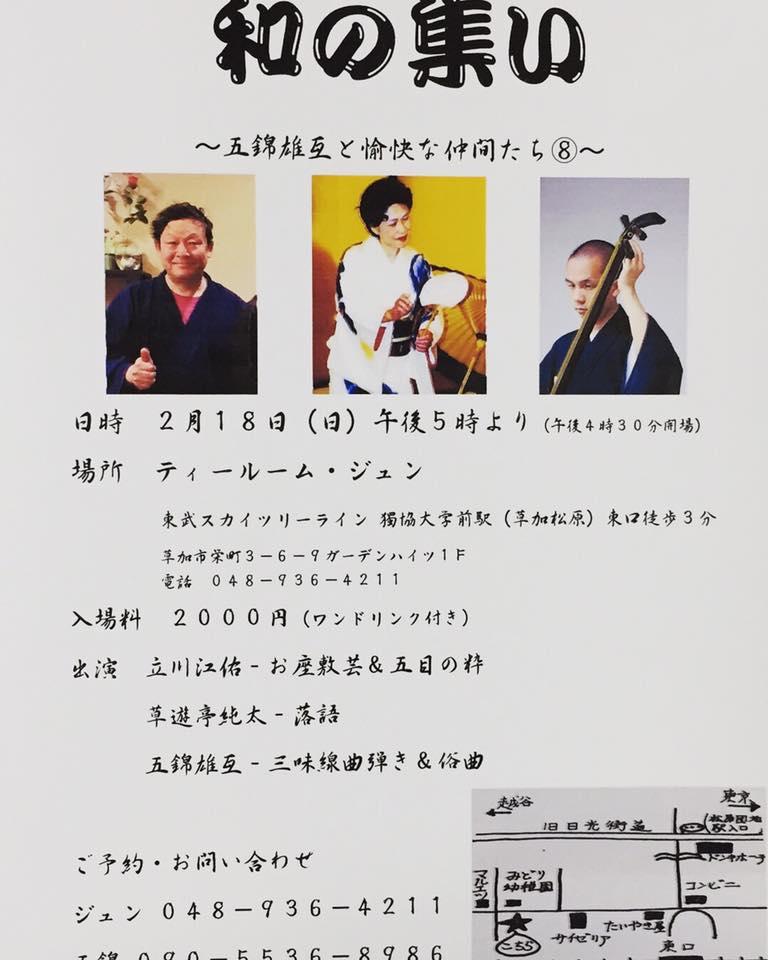 和の集い
～五錦雄互と愉快な仲間たち⑧～
日時 2月18日(日)午後5時より(午後4時30分開場)
場所 ティールーム・ジュン
東武スカイツリーライン 獨協大学前駅(草加松原)東口徒歩3分
草加市栄町3-6-9ガーデンハイツ1F
電話 048-936-4211
入場料 2000円(ワンドリンク付き)
出演 立川江佑-お座敷芸&五目の粋
草遊亭純太-落語
五錦雄互-三味線曲弾き&俗曲
ご予約・お問い合わせ
ジュン 048-936-4211
五錦 090-5536-8986
越谷
東京
旧日光街道
松原団地
駅入口
ドンキホーテ
マルエツ
みどり
幼稚園
コンビニ
こちら
サイゼリア
たいやき屋
東口